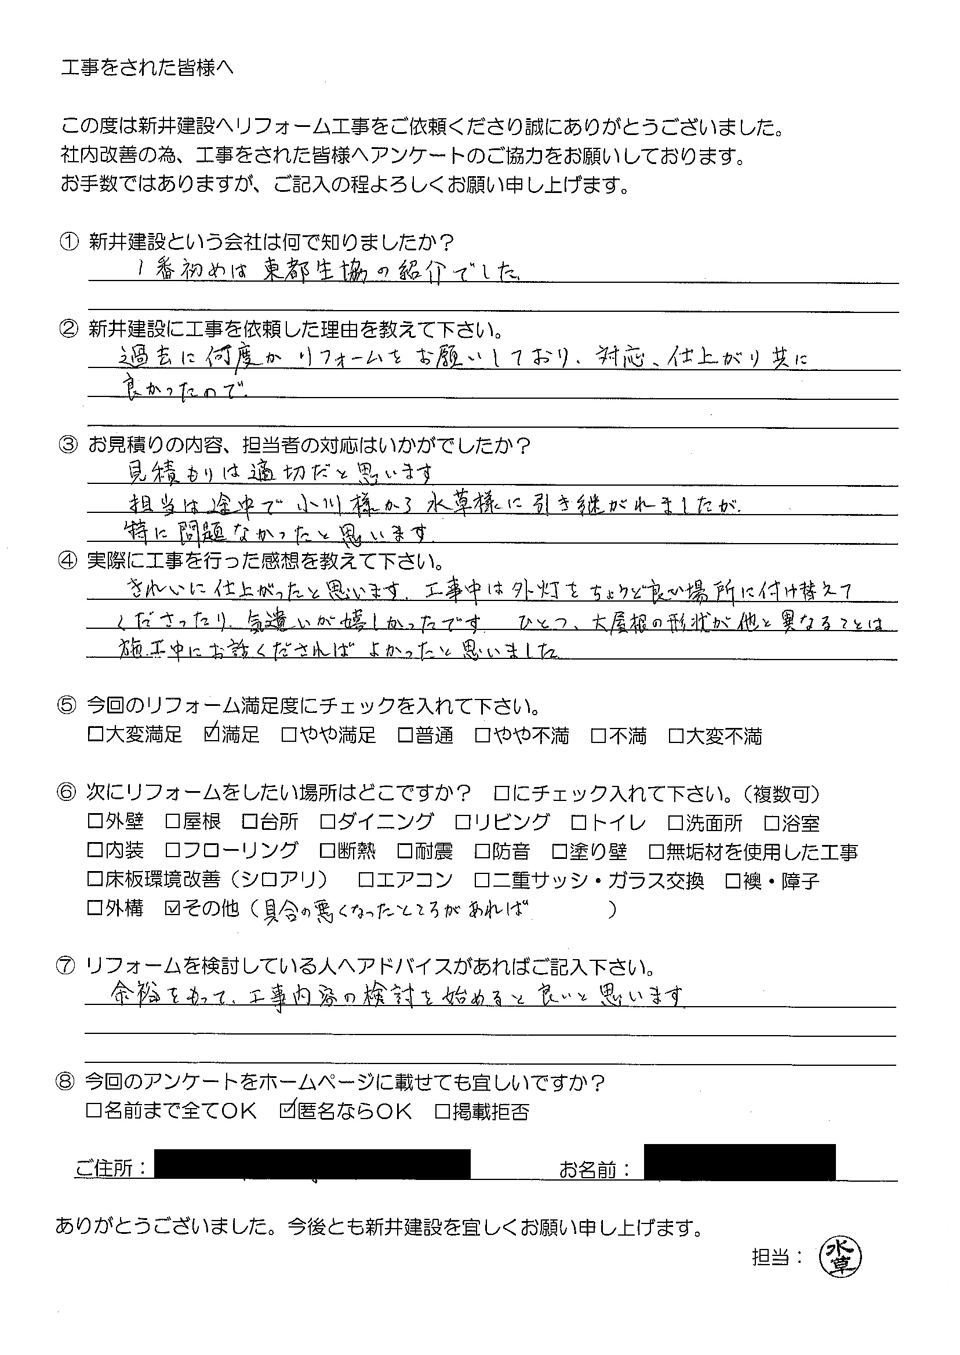 工事をされた皆様へ
この度は新井建設へリフォーム工事をご依頼くださり誠にありがとうございました。
社内改善の為、工事をされた皆様へアンケートのご協力をお願いしております。
お手数ではありますが、ご記入の程よろしくお願い申し上げます。
① 新井建設という会社は何で知りましたか？
1番初めは東都生協の紹介でした
② 新井建設に工事を依頼した理由を教えて下さい。
過去に何度かリフォームをお願いしており、対応、仕上がり共に
良かったので。
③ お見積りの内容、担当者の対応はいかがでしたか？
見積もりは適切だと思います
担当は途中で小川様から水草様に引き継がれましたが、
特に問題なかったと思います。
④ 実際に工事を行った感想を教えて下さい。
きれいに仕上がったと思います。工事中は外灯をちょうど良い場所に付け替えて
くださったり、気遣いが嬉しかったです ひとつ、大屋根の形状が他と異なることは
施工中にお話くださればよかったと思いました
⑤ 今回のリフォーム満足度にチェックを入れて下さい。
□大変満足 ☑満足 □やや満足 □普通 □やや不満 □不満 □大変不満
⑥ 次にリフォームをしたい場所はどこですか？ □にチェック入れて下さい。（複数可）
□外壁 □屋根 □台所 □ダイニング □リビング □トイレ □洗面所 □浴室
□内装 □フローリング □断熱 □耐震 □防音 □塗り壁 □無垢材を使用した工事
□床板環境改善（シロアリ） □エアコン □二重サッシ・ガラス交換 □襖・障子
□外構 ☑その他（具合の悪くなったところがあれば ）
⑦ リフォームを検討している人へアドバイスがあればご記入下さい。
余裕をもって、工事内容の検討を始めると良いと思います
⑧ 今回のアンケートをホームページに載せても宜しいですか？
□名前まで全てOK ☑匿名ならOK □掲載拒否
ご住所： お名前：
ありがとうございました。今後とも新井建設を宜しくお願い申し上げます。
担当： 水草